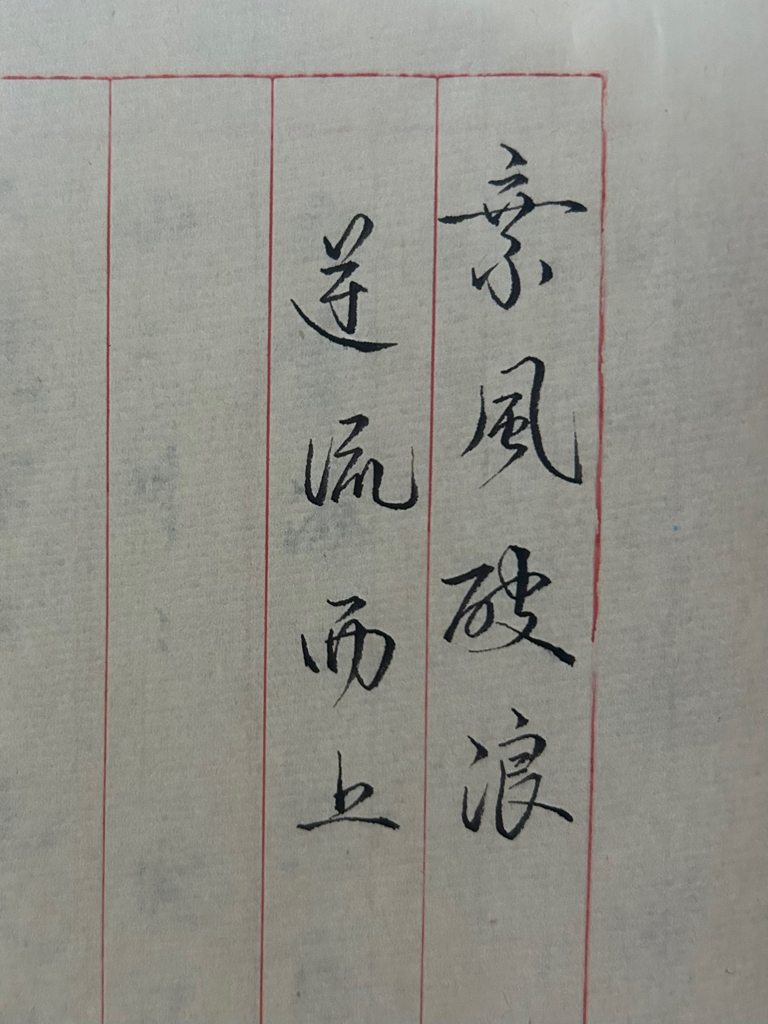 乘風破浪
逆流而上